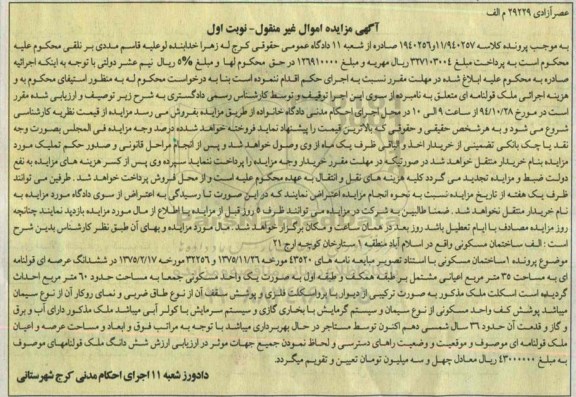 عصر آزادی ۲۹۲۲۹ م الف
آگهی مزایده اموال غیر منقول- نوبت اول
به موجب پرونده کلاسه ۱۱/۹۴۰۲۵۷و۱۹۴۰۲۵۶ صادره از شعبه ۱۱ دادگاه عمومی حقوقی کرج له زهرا خدابنده لو علیه قاسم مددی بر نلقی محکوم علیه
محکوم است به پرداخت مبلغ ۳۳۷۱۰۳۰۰۴ ریال مهریه و مبلغ ۱۳۶۹۱۰۰۰۰ در حق محکوم لها و مبلغ ۵% ریال نیم عشر دولتی با توجه به اینکه اجرائیه
صادره به محکوم علیه ابلاغ شده در مهلت مقرر نسبت به اجرای حکم اقدام ننموده است بنا به درخواست محکوم له به منظور استیفای محکوم به و
هزینه اجرائی ملک قولنامه ای متعلق به نامبرده از سوی این اجرا توقیف و توسط کارشناس رسمی دادگستری به شرح زیر توصیف و ارزیابی شده مقرر
است در مورخ ۹۴/۱۰/۲۸ از ساعت ۹ الی ۱۰ در محل اجرای احکام مدنی دادگاه خانواده از طریق مزایده بفروش می رسد مزایده از قیمت نظریه کارشناسی
شروع می شود و به هر شخص حقیقی و حقوقی که بالاترین قیمت را پیشنهاد نماید فروخته خواهد شد ده درصد وجه مزایده فی المجلس بصورت وجه
نقد یا چک بانکی تضمینی از خریدار اخذ و الباقی ظرف یک ماه از وی وصول خواهد شد و پس از انجام مراحل قانونی و صدور حکم تملیک مورد
مزایده بنام خریدار منتقل خواهد شد در صورتیکه در مهلت مقرر خریدار وجه مزایده را پرداخت ننماید سپرده وی پس از کسر هزینه های مزایده به نفع
دولت ضبط و مزایده تجدید می گردد کلیه هزینه های نقل و انتقال به عهده محکوم علیه است و از محل فروش پرداخت خواهد شد. طرفین می توانند
ظرف یک هفته از تاریخ مزایده نسبت به نحوه انجام مزایده اعتراض نمایند که در این صورت تا رسیدگی به اعتراض از سوی دادگاه مورد مزایده به
نام خریدار منتقل نخواهد شد. ضمنا طالبین به شرکت در مزایده می توانند ظرف ۵ روز قبل از مزایده با اطلاع از مال مورد مزایده بازدید نمایند چنانچه
روز مزایده مصادف با ایام تعطیل باشد روز بعد در همان ساعت و مکان برگزار خواهد شد مال مورد مزایده و بهای آن طبق نظر کارشناس بدین شرح
است: الف ساختمان مسکونی واقع در اسلام آباد منطقه ۱ ستارخان کوچه ارج ۲۱
موضوع پرونده ۱ ساختمان مسکونی با استناد تصویر مبایعه نامه های ۴۳۵۲۰ مورخه ۱۳۷۵/۱۱/۲۶ و ۳۲۲۵۶ مورخه ۱۳۷۵/۲/۱۷ در ششدانگ عرصه ای قولنامه
ای به مساحت ۳۵ متر مربع اعیانی مشتمل بر طبقه همکف و طبقه اول به صورت یک واحد مسکونی جمعا به مساحت حدود ۶۰ متر مربع احداث
گردیده است اسکلت ملک مذکور به صورت ترکیبی از دیوار با پروسکلت فلزی و پوشش سقف آن از نوع طاق ضربی و نمای روکار آن از نوع سیمان
میباشد پوشش کف واحد مسکونی از نوع سیمان و سیستم گرمایش با بخاری گازی و سیستم سرمایش با کولر آبی میباشد ملک مذکور دارای آب و برق
و گاز و قدمت آن حدود ۳۶ سال شمسی دهم اکنون توسط مستاجر در حال بهره برداری میباشد با توجه به مراتب فوق و ابعاد و مساحت عرصه و اعیان
ملک قولنامه ای موصوف و موقعیت و وضعیت راههای دسترسی و لحاظ نمودن جمیع جهات موثر در ارزیابی ارزش شش دانگ ملک قولنامه‌ای موصوف
به مبلغ ۴۳۰۰۰۰۰۰ ریال معادل چهل و سه میلیون تومان تعیین و تقویم میگردد.
دادورز شعبه ۱۱ اجرای احکام مدنی کرج شهرستانی